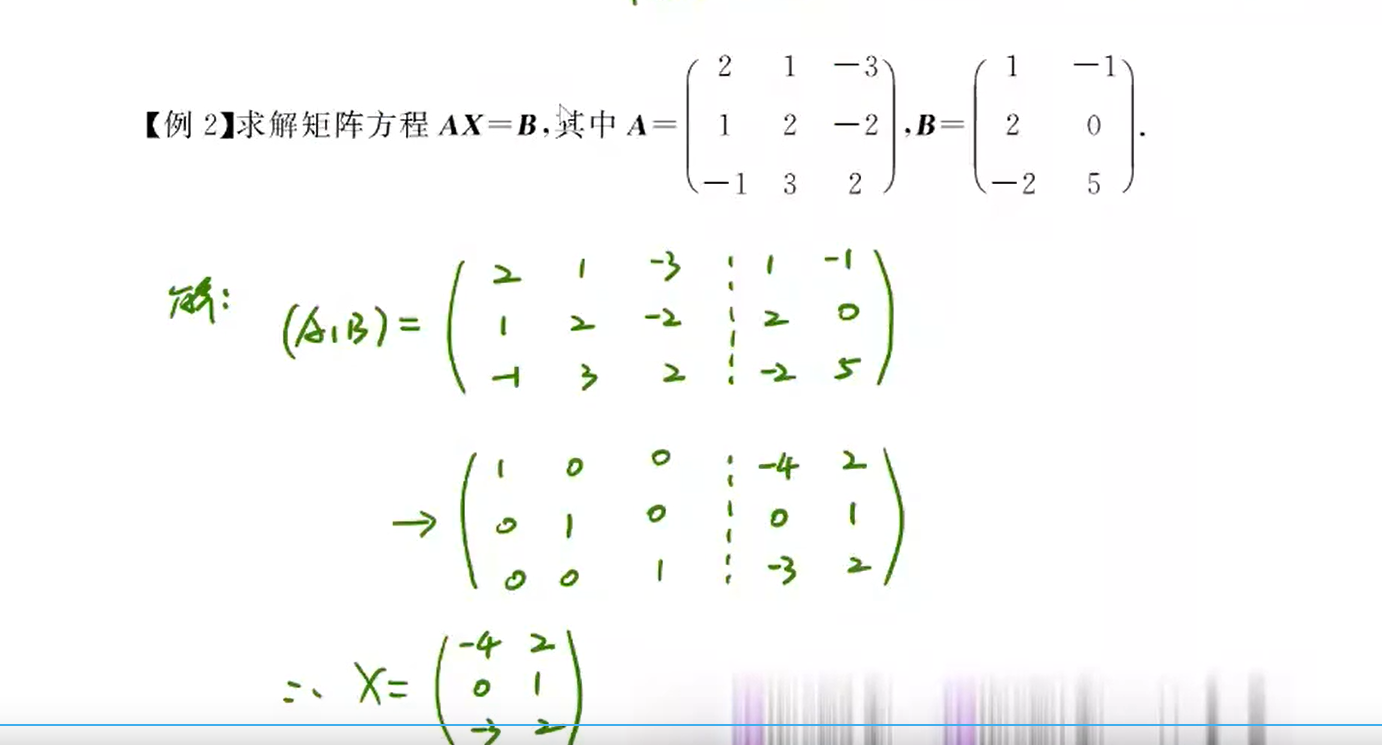 【例 2】求解矩阵方程 AX=B,其中 A=
2 1 -3
1 2 -2
-1 3 2
,B=
1 -1
2 0
-2 5
.
解:
(A,B) =
2 1 -3 1 -1
1 2 -2 2 0
-1 3 2 -2 5
→
1 0 0 -4 2
0 1 0 0 1
0 0 1 -3 2
∴ X=
-4 2
0 1
-3 2